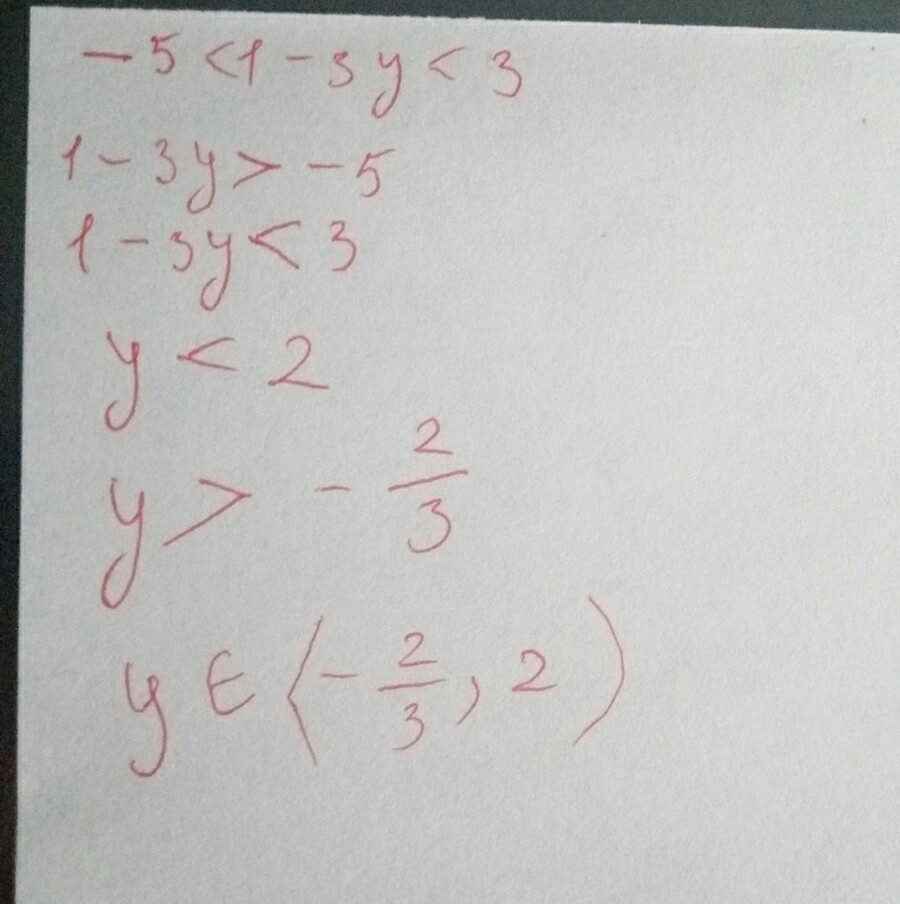 -5<1-3y<3
1-3y>-5
1-3y<3
y<2
y>-2/3
y∈(-2/3,2)